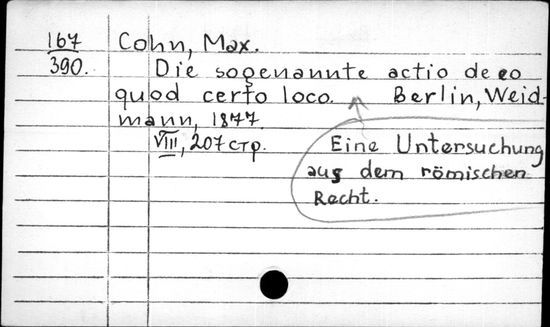 167 Cohn, Max.
390. Die sogenannte actio de eo
quod certo loco. Berlin, Weid-
mann, 1877.
VIII, 207 стр.
Eine Untersuchung
aus dem römischen
Recht.